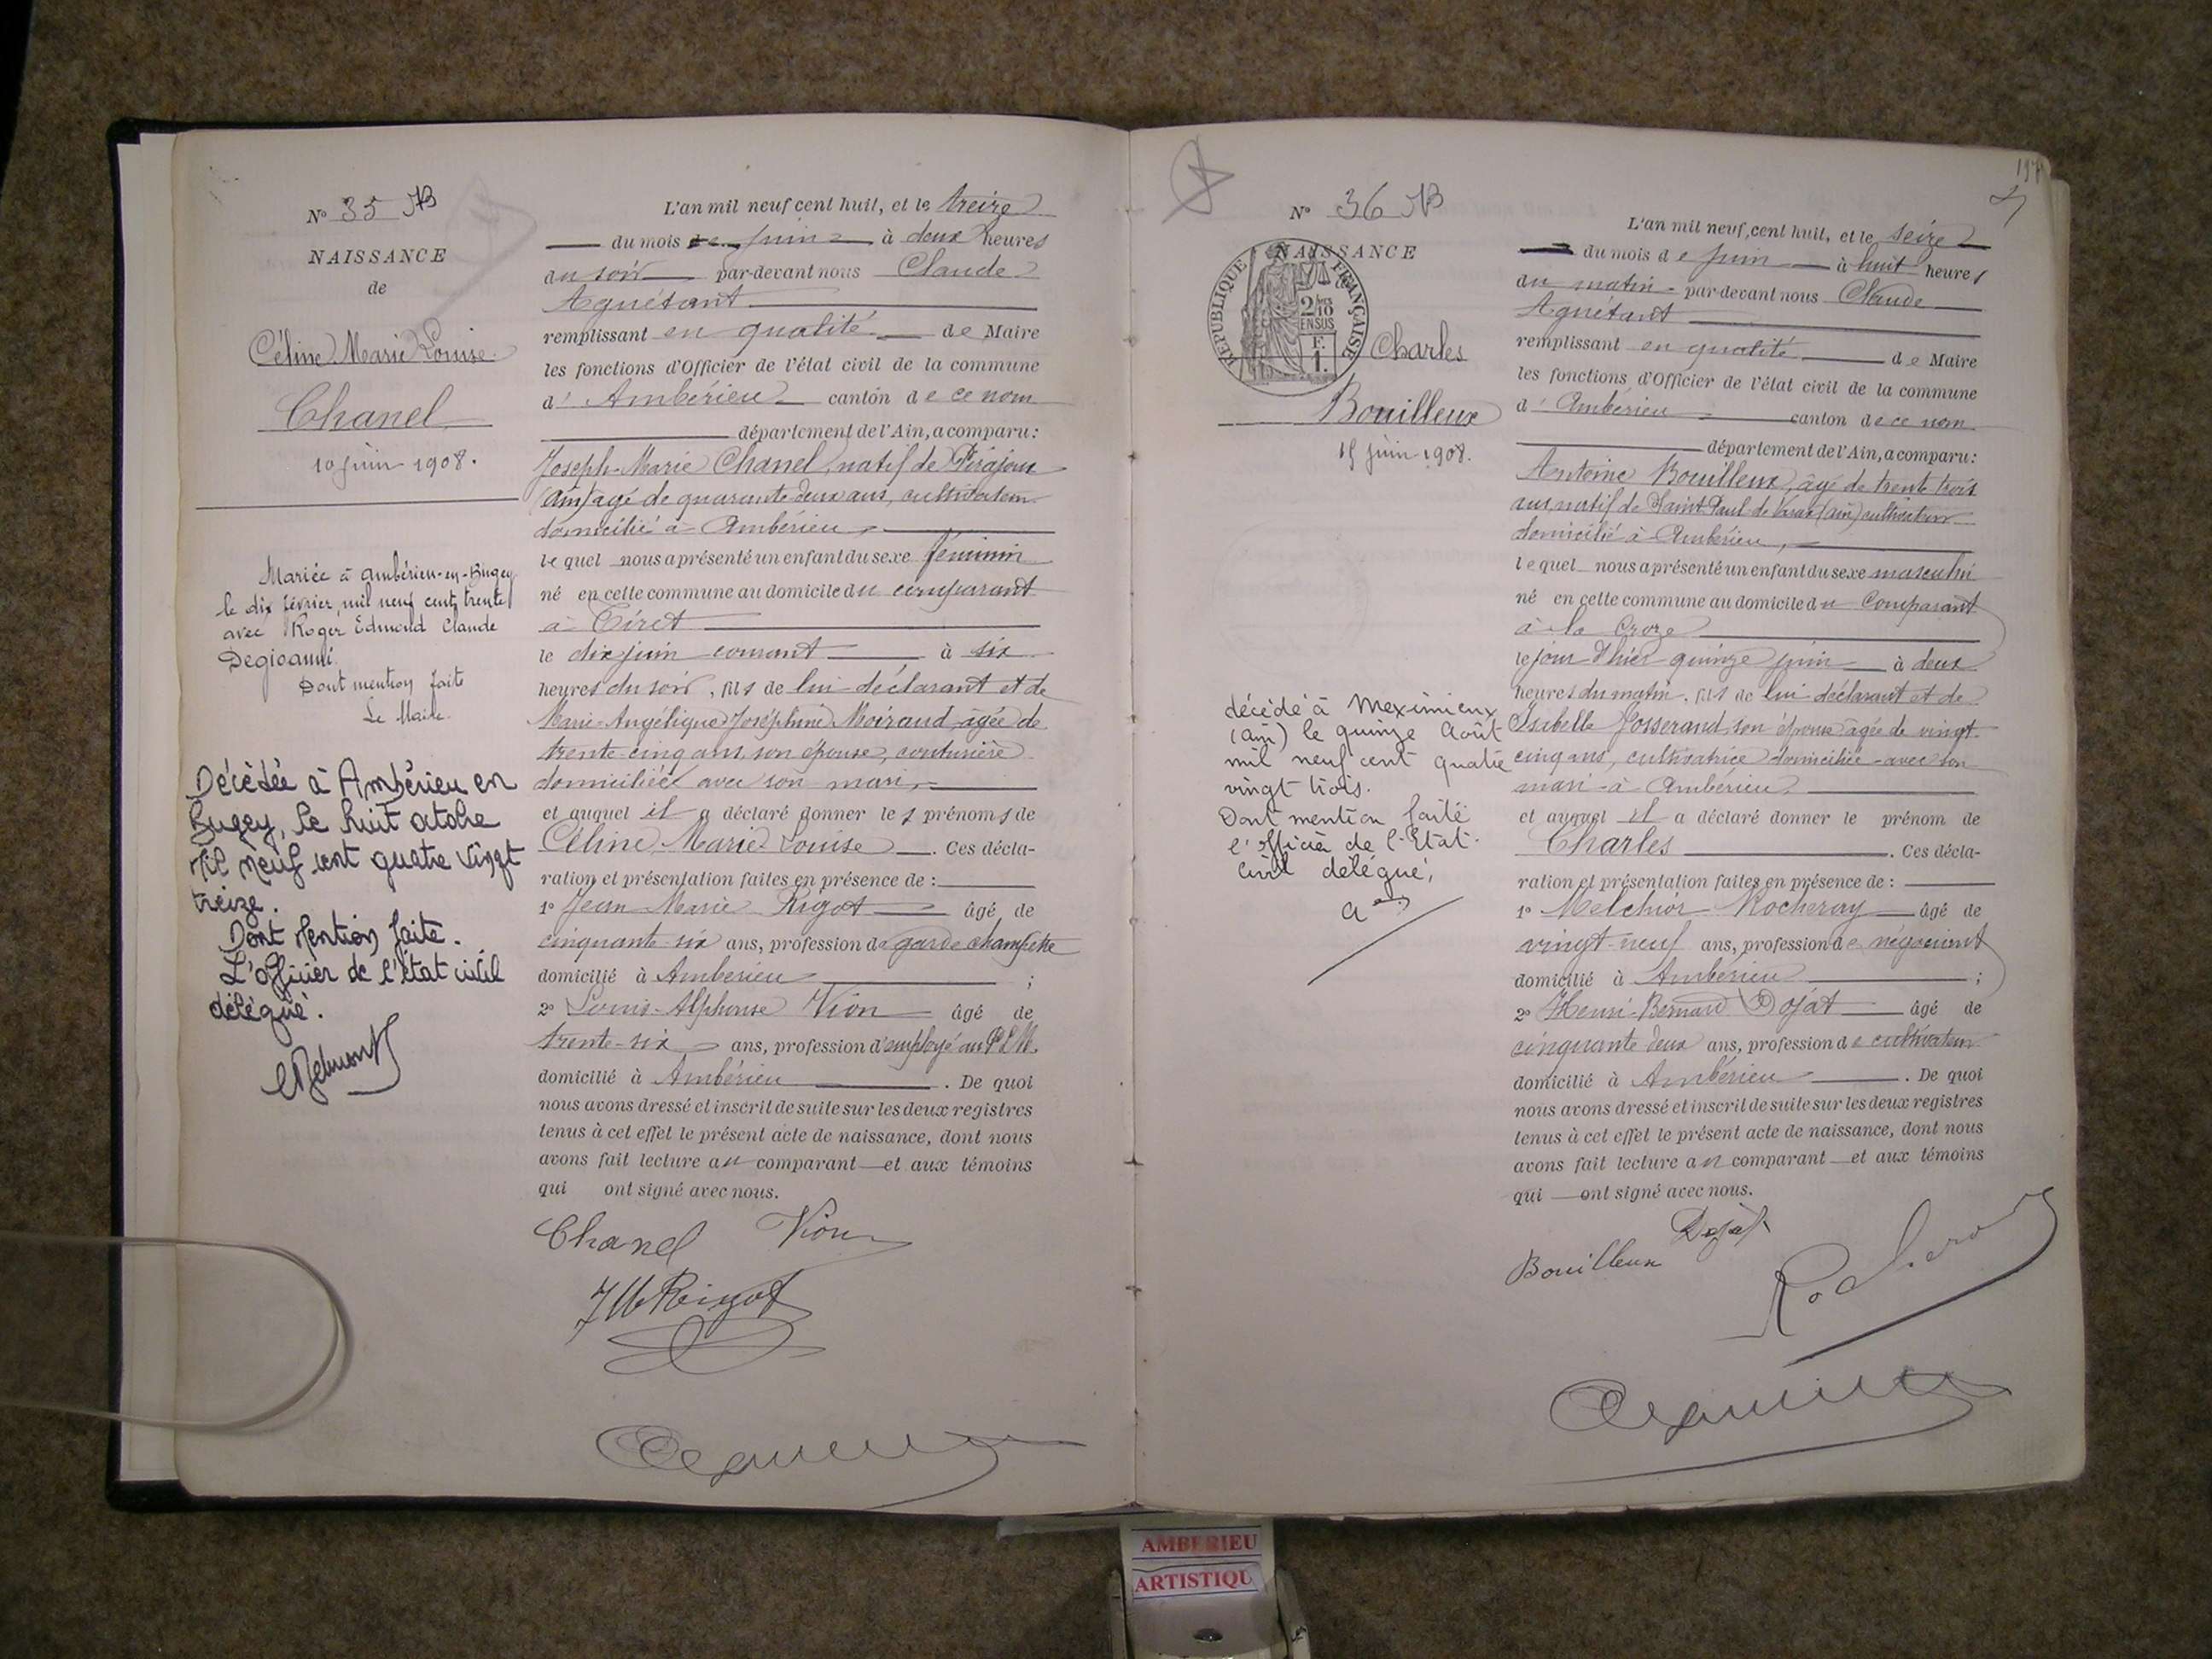 N° 35 NB
NAISSANCE
de
Céline Marie Louise
Chanel
10 juin 1908.
Mariée à Ambérieu-en-Bugey
le dix février mil neuf cent trente
avec Roger Edmond Claude
Degioanni.
Dont mention faite
Le Maire.
Décédée à Ambérieu en
Bugey, le huit octobre
mil neuf cent quatre vingt
treize.
Dont mention faite.
L'officier de l'état civil
délégué.
L'an mil neuf cent huit, et le treize
du mois de juin à deux heures
du soir par-devant nous Claude
Aguétant
remplissant en qualité de Maire
les fonctions d'Officier de l'état civil de la commune
d'Ambérieu canton de ce nom
département de l'Ain, a comparu:
Joseph-Marie Chanel, natif de Pirajoux
(Ain) agé de quarante deux ans, cultivateur
domicilié à Ambérieu,
lequel nous a présenté un enfant du sexe féminin
né en cette commune au domicile du comparant
à Tiret
le dix juin courant à six
heures du soir, fils de lui déclarant et de
Marie-Angélique Joséphine Moiraud âgée de
trente-cinq ans, son épouse, couturière
domiciliée avec son mari,
et auquel il a déclaré donner les prénoms de
Céline Marie Louise. Ces décla-
ration et présentation faites en présence de:
1° Jean Marie Rigot âgé de
cinquante-six ans, profession de garde champêtre
domicilié à Ambérieu;
2° Louis-Alphonse Vion âgé de
trente-six ans, profession d'employé au PLM.
domicilié à Ambérieu. De quoi
nous avons dressé et inscrit de suite sur les deux registres
tenus à cet effet le présent acte de naissance, dont nous
avons fait lecture au comparant et aux témoins
qui ont signé avec nous.
Chanel Vion
JM Rigot
N° 36 NB
NAISSANCE
RÉPUBLIQUE FRANÇAISE
2/10
EN SUS
F.
1.
Charles
Bouilleux
15 juin 1908.
décédé à Meximieux
(Ain) le quinze Août
mil neuf cent quatre
vingt trois.
Dont mention faite
l'officier de l'Etat
Civil délégué,
197
L'an mil neuf cent huit, et le seize
du mois de juin à huit heures
du matin par-devant nous Claude
Aguétant
remplissant en qualité de Maire
les fonctions d'Officier de l'état civil de la commune
d'Ambérieu canton de ce nom
département de l'Ain, a comparu:
Antoine Bouilleux, âgé de trente trois
ans natif de Saint Paul de Varax (Ain) cultivateur
domicilié à Ambérieu,
lequel nous a présenté un enfant du sexe masculin
né en cette commune au domicile du Comparant
à la Croze
le jour d'hier quinze juin à deux
heures du matin, fils de lui déclarant et de
Isabelle Josserand, son épouse âgée de vingt-
cinq ans, cultivatrice domiciliée avec son
mari à Ambérieu
et auquel il a déclaré donner le prénom de
Charles. Ces décla-
ration et présentation faites en présence de:
1° Melchior Rocheray âgé de
vingt-neuf ans, profession de négociant
domicilié à Ambérieu;
2° Henri-Bernard Dojat âgé de
cinquante deux ans, profession de cultivateur
domicilié à Ambérieu. De quoi
nous avons dressé et inscrit de suite sur les deux registres
tenus à cet effet le présent acte de naissance, dont nous
avons fait lecture au comparant et aux témoins
qui ont signé avec nous.
Bouilleux Dojat
AMBERIEU
ARTISTIQU